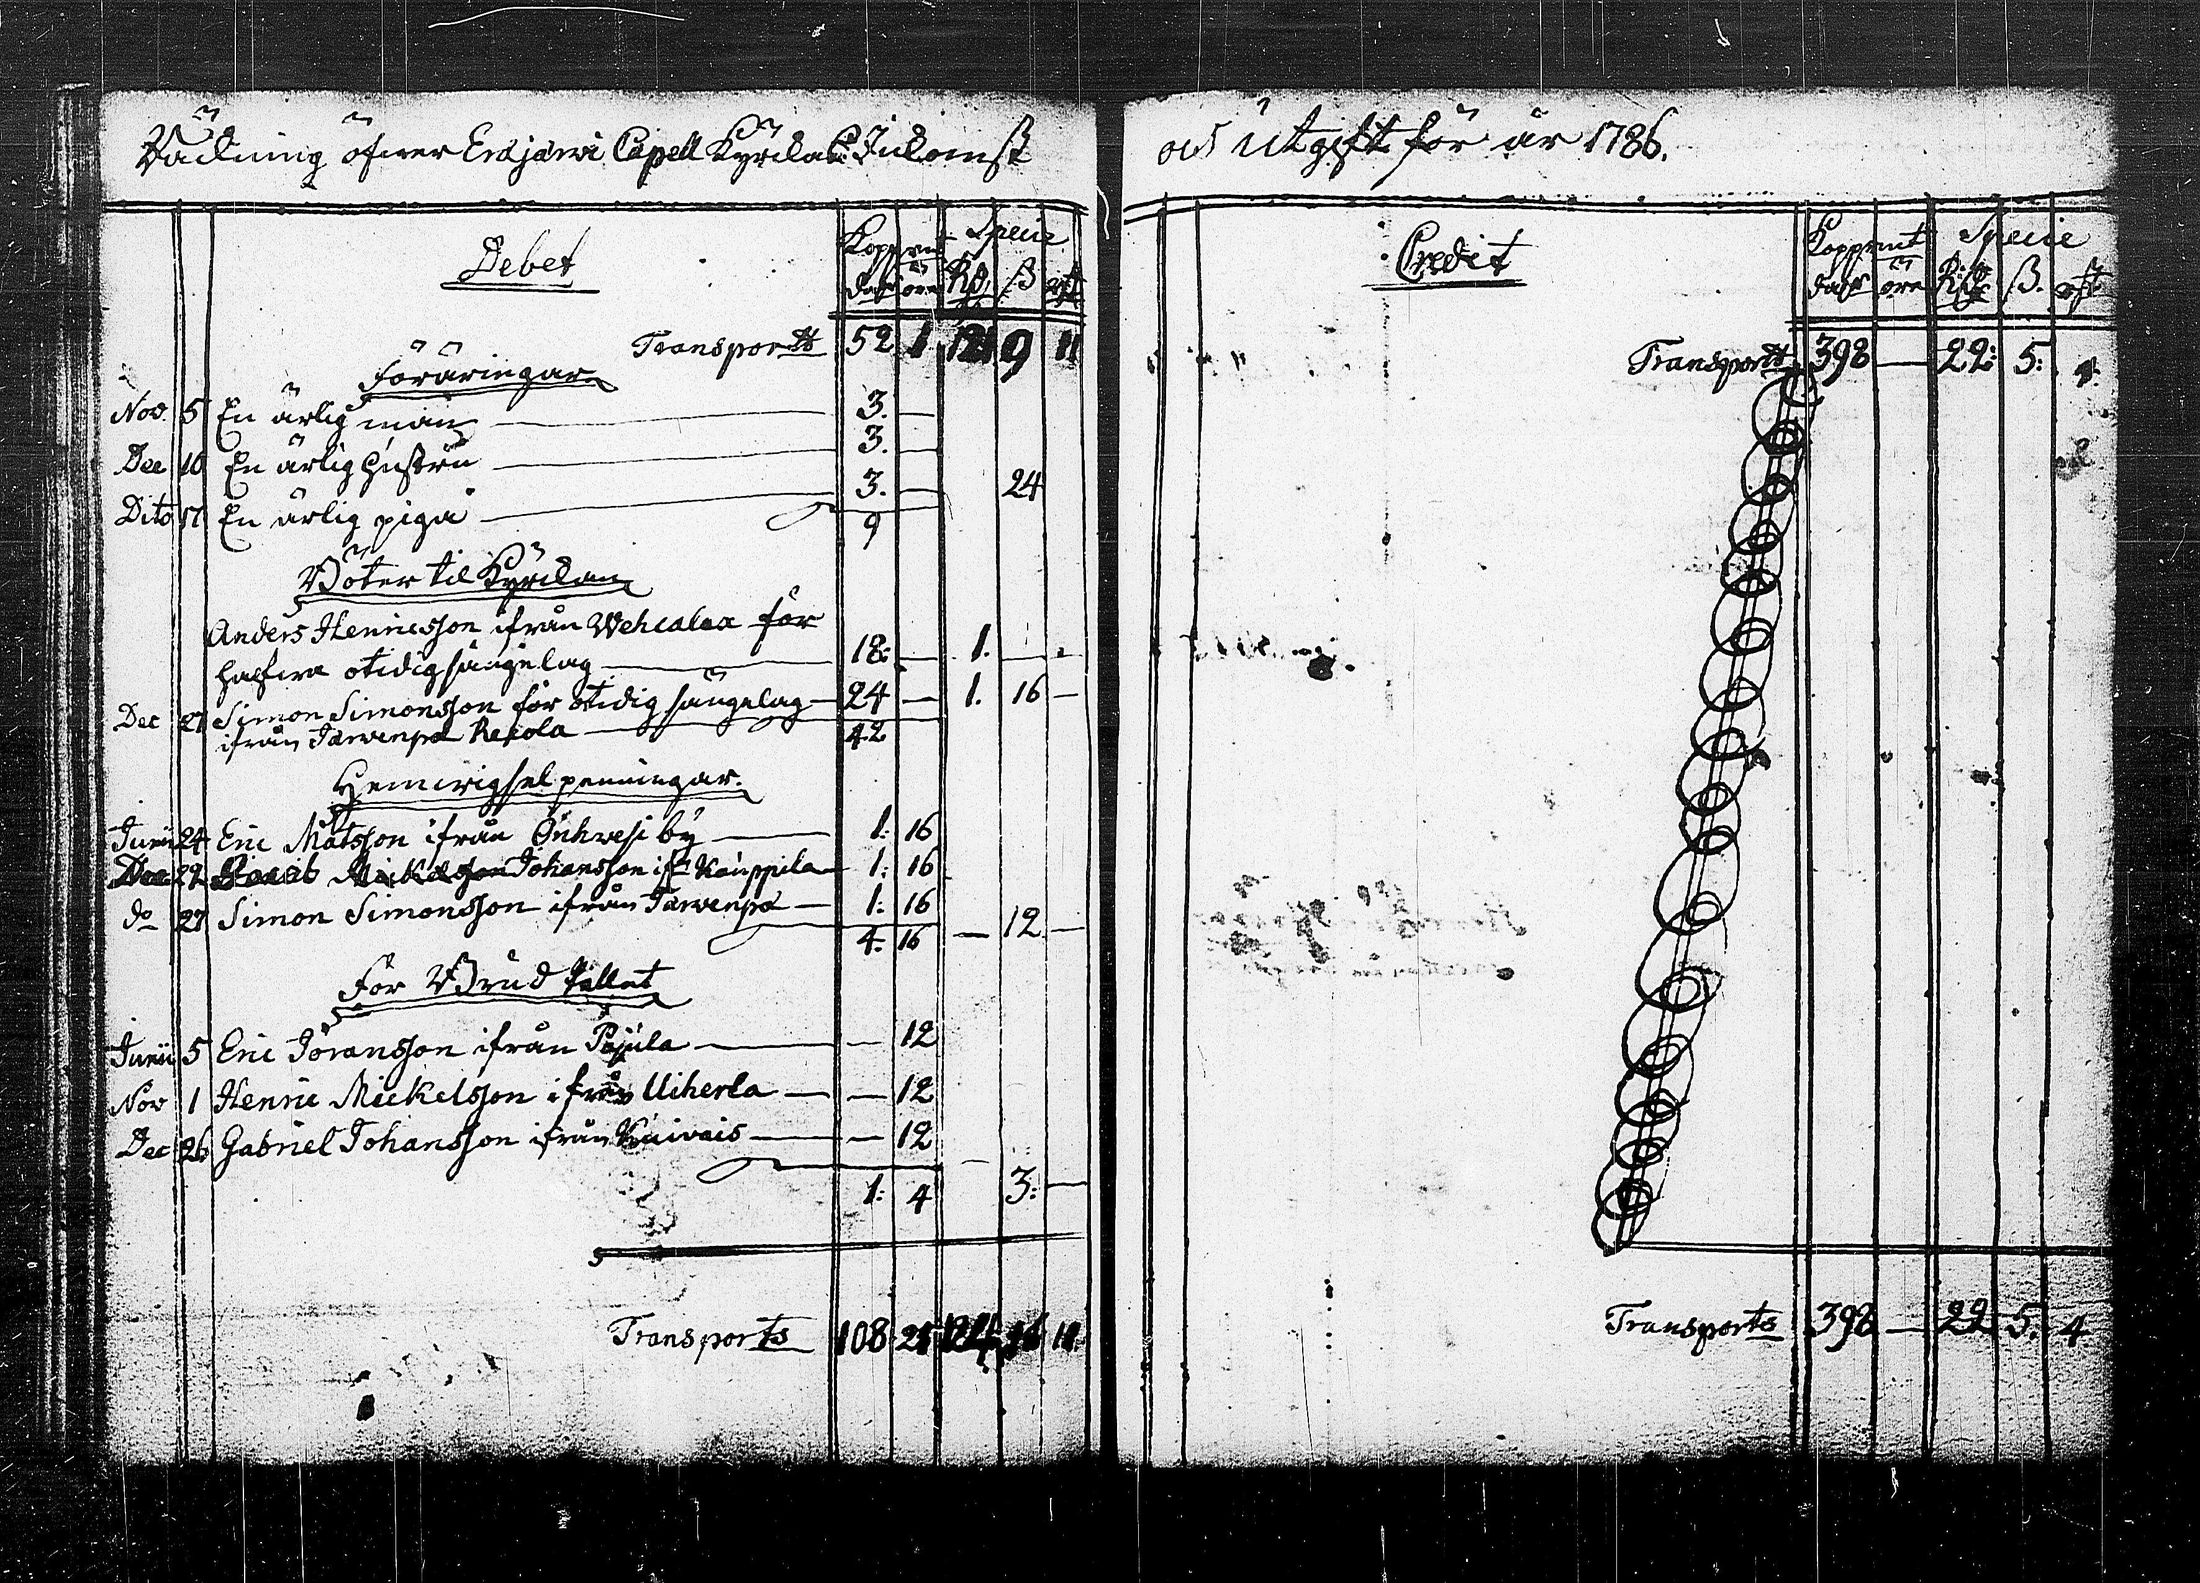 Räckning öfwer Eräjärwi Capell Kyrckas Inkomst
och Utgift för år 1786.
Debet
Kopp mt Specie
dal öre Rd ß rst
Transports 52 1 121 9 11
Föräringar
Nov. 5 En ärlig man 3. —
Dec 10 En ärlig hustru 3. —
Dito 17 En ärlig piga 3. — 24
9
Böter til Kyrckan
Anders Henricsson ifrån Wehcalax för
halfwa otidig sängelag 18: — 1. — -
Dec 27 Simon Simonsson för otidig sängelag 24 — 1. 16 —
ifrån Järwenpä Rekola 42
Hemwigsel penningar.
Junii 24 Eric Matsson ifrån Önhvesi by 1: 16
Dec 22 Johansson ifr Kauppila 1: 16
do 27 Simon Simonsson ifrån Järwenpä 1: 16
4: 16 — 12 —
För Brud Pellet
Junii 5 Eric Jöransson ifrån Pajula — 12
Nov 1 Henric Mickelsson ifrån Uiherla — 12
Dec 26 Gabriel Johansson ifrån Kuivais — 12
1: 4 3: —
Transports 108 21 124 16 11
Credit
Koppmt Specie
dal öre Rd ß. rst
Transports 398 — 22: 5: 4:
Transports 398 — 22 5. 4